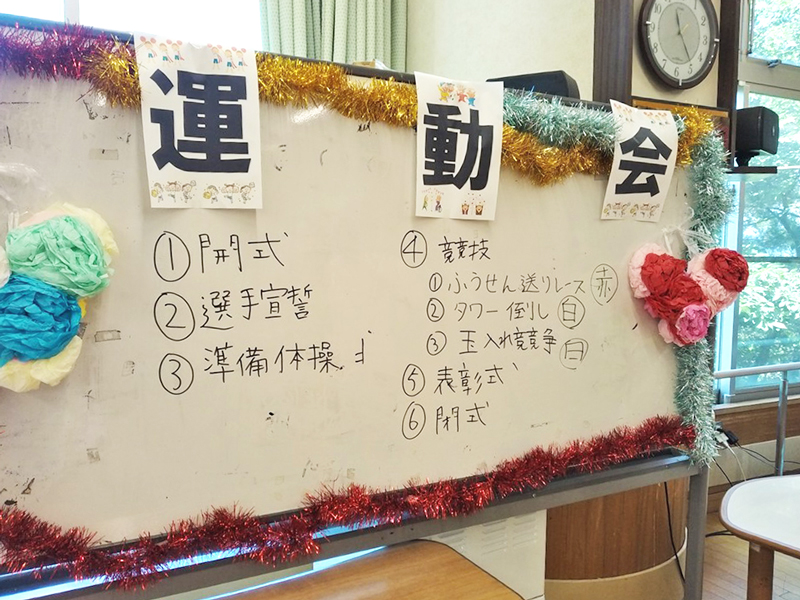 運動会
①開式
②選手宣誓
③準備体操
④競技
①ふうせん送りレース 赤
②タワー倒し 白
③玉入れ競争 白
⑤表彰式
⑥閉式